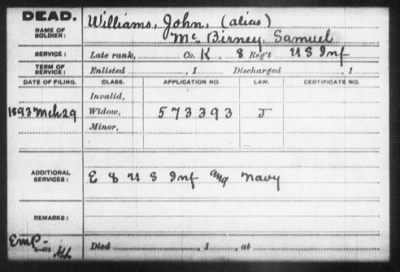 DEAD.
NAME OF SOLDIER:
Williams, John, (alias)
McBirney, Samuel
SERVICE:
Late rank, Co. K, 8 Reg't U S Inf
TERM OF SERVICE:
Enlisted , 1 Discharged , 1
DATE OF FILING. CLASS. APPLICATION NO. LAW. CERTIFICATE NO.
Invalid,
1893 Mch 29 Widow, 573393 J
Minor,
ADDITIONAL SERVICES:
E 8 U S Inf and Navy
REMARKS:
Died , 1 , at